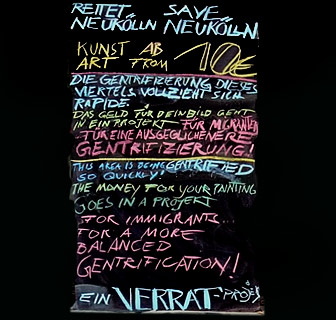 RETTET SAVE
NEUKÖLLN NEUKÖLLN
KUNST AB 10€
ART FROM
DIE GENTRIFIZIERUNG DIESES
VIERTELS VOLLZIEHT SICH
RAPIDE.
DAS GELD FÜR DEIN BILD GEHT
IN EIN PROJEKT FÜR MIGRANTEN
FÜR EINE AUSGEGLICHENERE
GENTRIFIZIERUNG!
THIS AREA IS BEING GENTRIFIED
SO QUICKLY!
THE MONEY FOR YOUR PAINTING
GOES IN A PROJEKT
FOR IMMIGRANTS...
FOR A MORE
BALANCED
GENTRIFICATION!
EIN VERRAT-